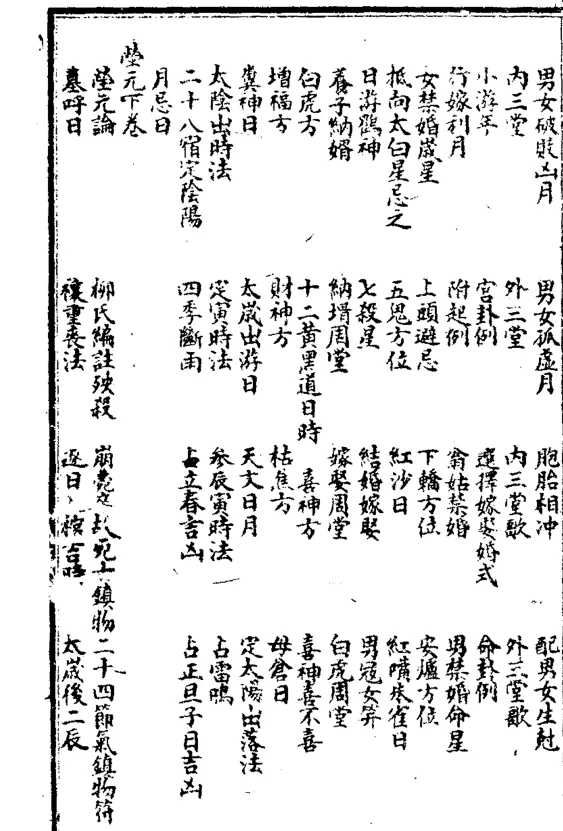 男女破敗凶月　男女孤虛月　胞胎相冲　配男女生尅
內三堂　外三堂　內三堂歌　外三堂歌
小游年　宮卦例　選擇嫁娶婚式　命卦例
行嫁利月　附起例　翁姑禁婚　男禁婚命星
女禁婚歲星　上頭避忌　下轎方位　安爐方位
抵向太白星忌之　五鬼方位　紅沙日　紅嘴朱雀日
日游鶴神　七殺星　結婚嫁娶　男冠女笄
養子納婿　納壻周堂　嫁娶周堂　白虎周堂
白虎方　十二黃黑道日時　喜神方　喜神喜不喜
增福方　財神方　枯焦方　母倉日
糞神日　太歲出游日　天文日月　定太陽出落法
太陰出時法　定寅時法　參辰寅時法　占雷鳴
二十八宿定陰陽　四季斷雨　占立春吉凶　占正旦子日吉凶
月忌日
塋元下卷
塋元論　柳氏編註殃殺　崩薨　故死　鎮物　二十四節氣鎮物符
墓呼日　禳重喪法　逐日　太歲後二辰